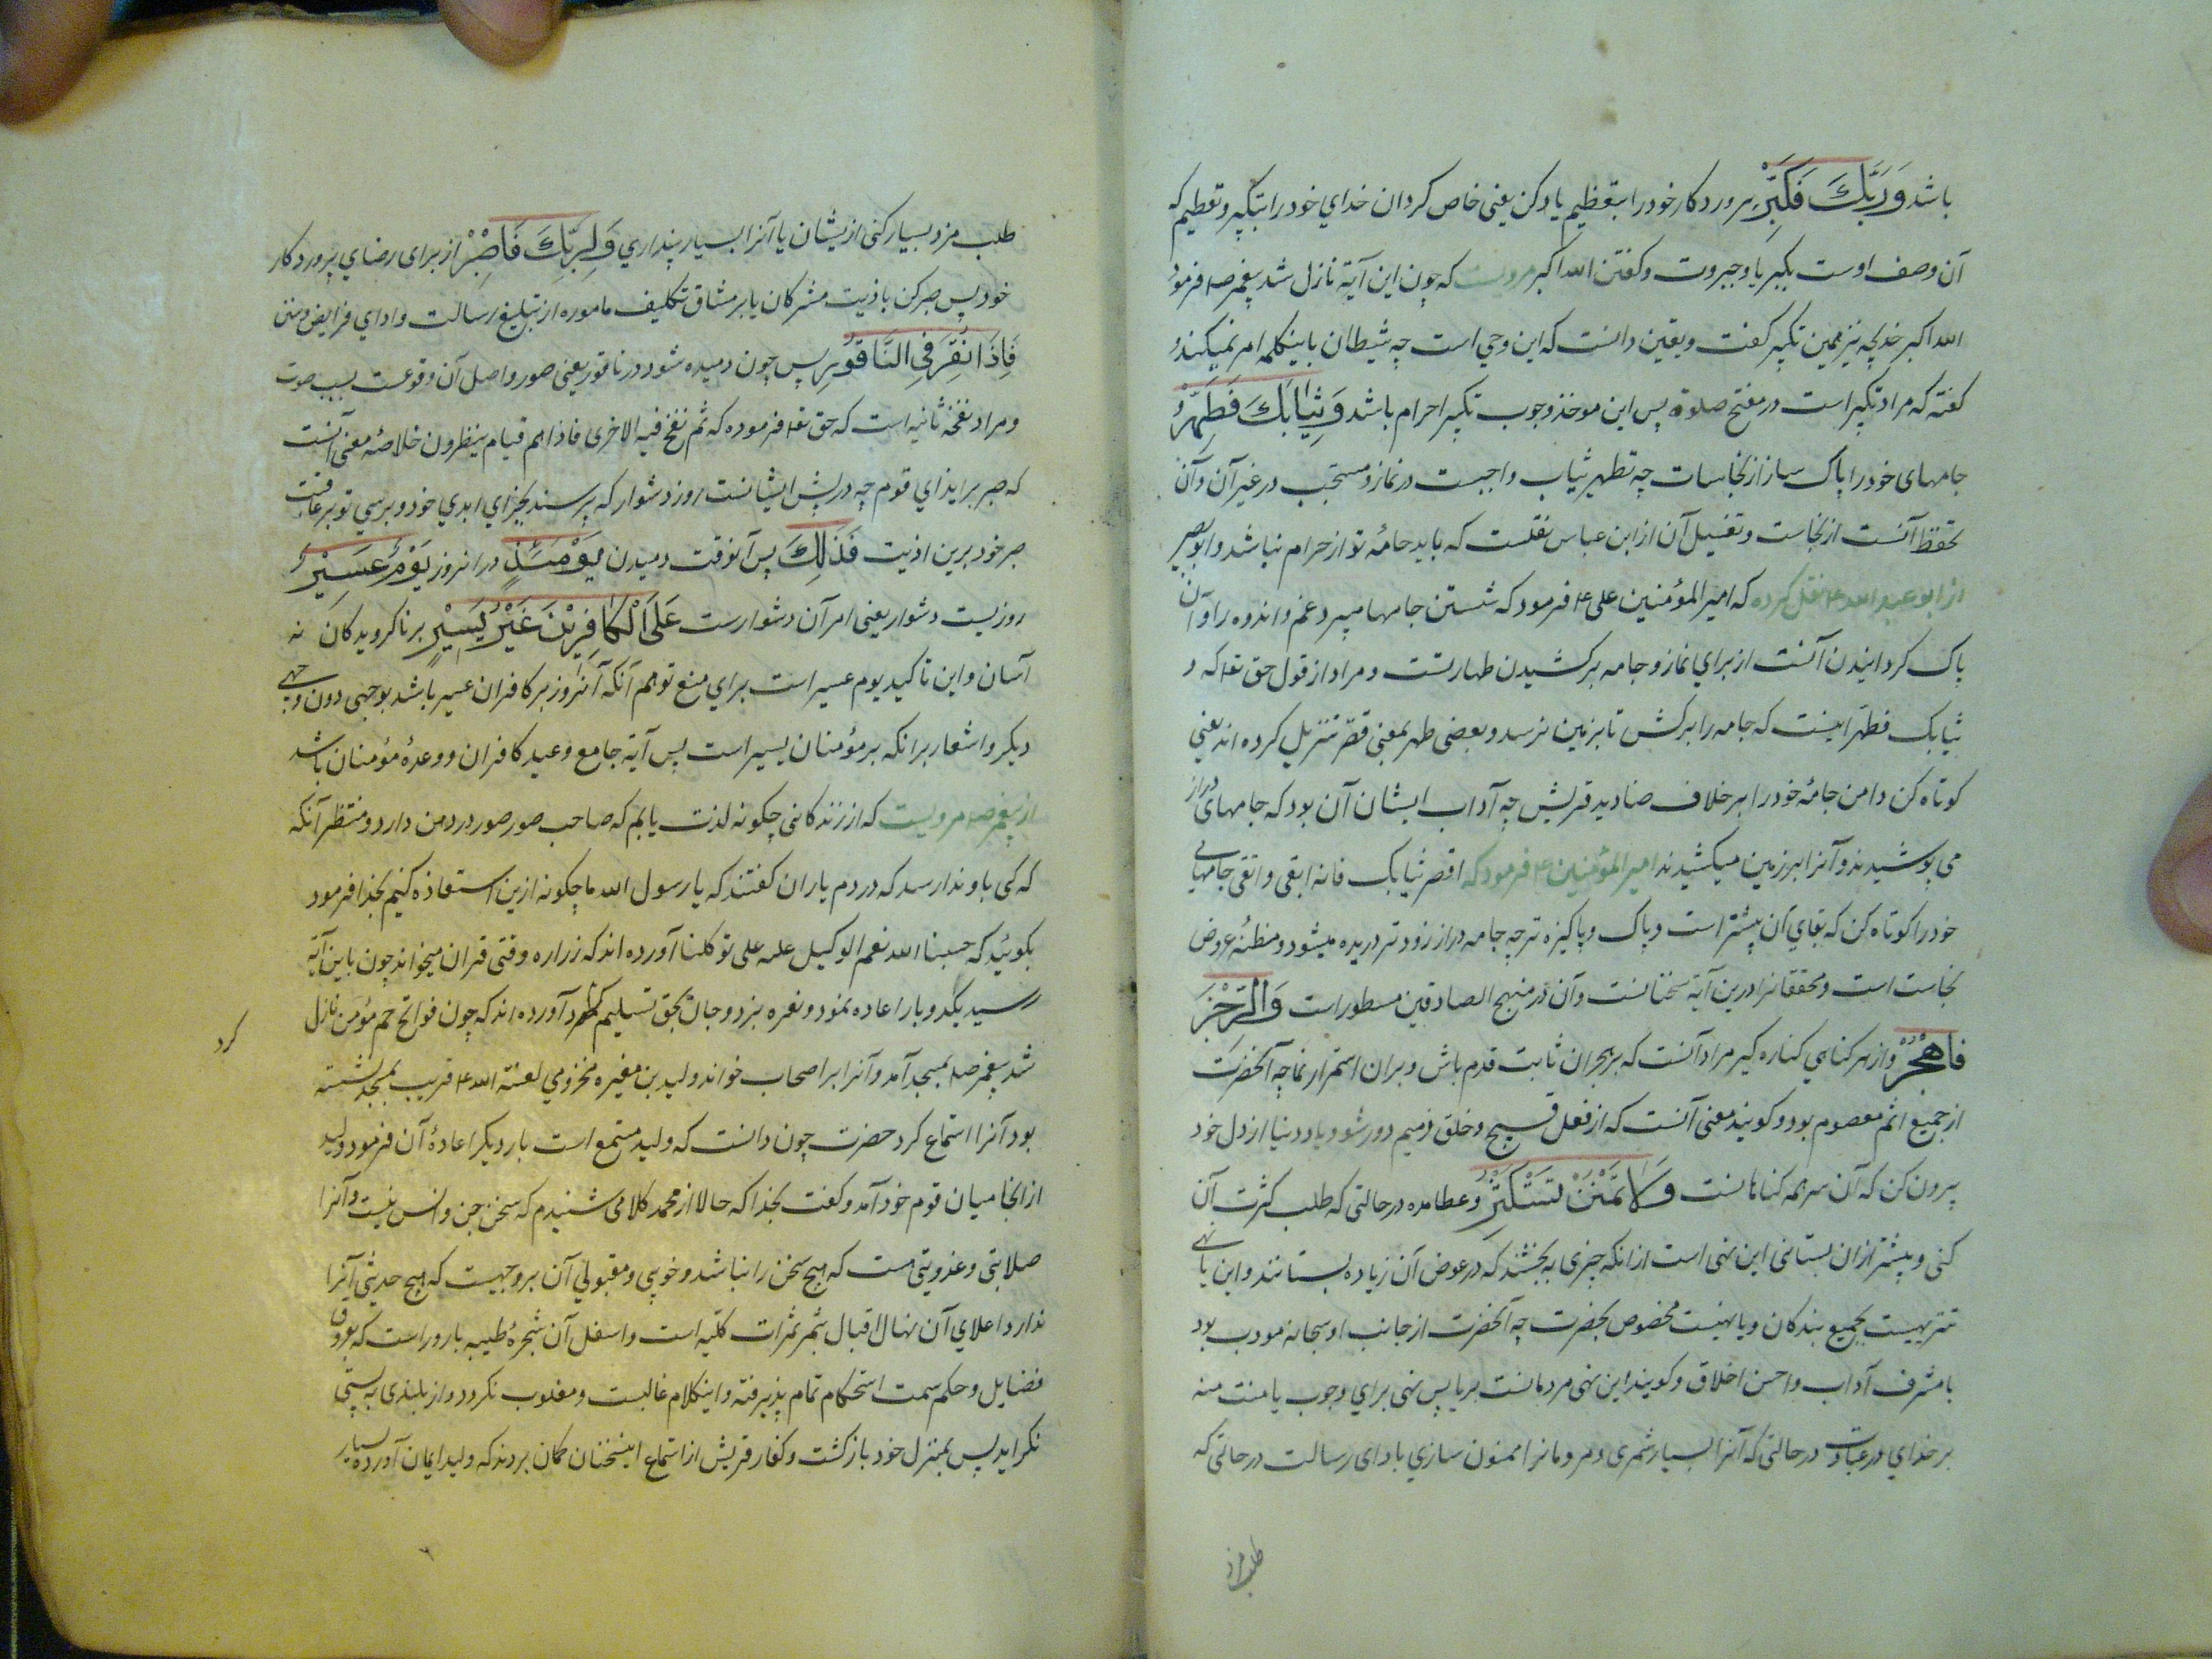 باشد وَرَبَّكَ فَكَبِّرْ پروردكار خود را بتعظيم ياد كن يعنى خاص كردان خداي خود را بتكبير و تعظيم كه
آن وصف اوست بكبريا و جبروت و كفتن الله اكبر مرويست كه چون اين آية نازل شد پيغمبر صلعم فرمود
الله اكبر خديجه نيز همين تكبير كفت و يقين دانست كه اين وحي است چه شيطان باينكلمه امر نميكند و
كفته كه مراد تكبير است در مفتح صلوة پس اين موخذ وجوب تكبير احرام باشد وَثِيَابَكَ فَطَهِّرْ و
جامهاى خود را پاك ساز از نجاسات چه تطهير ثياب واجبست در نماز و مستحب در غير آن و آن
بحفظ آنست از نجاست و تغسيل آن از ابن عباس نقلست كه بايد جامۀ تو از حرام نباشد و ابو بصير
از ابو عبد الله ع نقل كرده كه امير المؤمنين على ع فرمود كه شستن جامها ميبرد غم و اندوه را و آن
پاك كردانيدن آنست از براي نماز و جامه بركشيدن طهارتست و مراد از قول حق تعا كه و
ثيابك فطهّر اينست كه جامه را بركش تا بزمين نرسد و بعضى طهر بمعني قصّر تنزيل كرده اند يعني
كوتاه كن دامن جامۀ خود را بر خلاف صناديد قريش چه آداب ايشان آن بود كه جامهاى دراز
مى پوشيدند و آنرا بر زمين ميكشيدند امير المؤمنين ع فرمود كه اقصر ثيابك فانه ابقى و اتقى جامهاى
خود را كوتاه كن كه بقاي آن بيشتر است و پاك و پاكيزه تر چه جامه دراز زودتر دريده ميشود و مظنۀ عروض
نجاست است و محققانرا درين آية سخنانست و آن در منهج الصادقين مسطور است وَالرُّجْزَ
فَاهْجُرْ و از هر كناهي كناره كير مراد آنست كه بر هجران ثابت قدم باش و بران استمرار نما چه آنحضرت
از جميع اثم معصوم بود و كويند معنى آنست كه از فعل قبيح و خلق ذميم دور شو و يا ددنيا از دل خود
بيرون كن كه آن سر همه كناهانست وَلَا تَمْنُنْ تَسْتَكْثِرُ و عطا مده در حالتى كه طلب كثرت آن
كنى و بيشتر ازان بستانى اين نهى است از انكه چيزى به بخشند كه در عوض آن زياده بستانند و اين يا نهى
تنزيهيست بجميع بندكان و يا نهيست مخصوص بحضرت چه آنحضرت از جانب او سبحانه مودب بود
باشرف آداب و احسن اخلاق و كويند اين نهى مردمانست بريا پس نهى براي وجوب يا منت منه
بر خداي در عبادت در حالتى كه آنرا بسيار شمرى و مردمانرا ممنون سازي باداى رسالت در حالتى كه
طلب مزد
طلب مزد بسيار كنى از يشان يا آنرا بسيار پنداري وَلِرَبِّكَ فَاصْبِرْ از براى رضاي پروردكار
خود پس صبر كن باذيت مشركان يا بر مشاق تكليف ماموره از تبليغ رسالت و اداي فرايض و سنن
فَإِذَا نُقِرَ فِي النَّاقُورِ پس چون دميده شود در ناقور يعنى صور و اصل آن وقوعست بسبب صوت
و مراد نفخه ثانيه است كه حق تعا فرموده كه ثم نفخ فيه اخرى فاذا هم قيام ينظرون خلاصۀ معنى آنست
كه صبر بر ايذاي قوم چه در پيش ايشانست روز دشوار كه برسند بجزاي ابدي خود و برسي تو بر عاقبت
صبر خود برين اذيت فَذَٰلِكَ پس آنوقت دميدن يَوْمَئِذٍ در انروز يَوْمٌ عَسِيرٌ
روزيست دشوار يعنى امر آن دشوارست عَلَى الْكَافِرِينَ غَيْرُ يَسِيرٍ بر ناكرويدكان نه
آسان و اين تاكيد يوم عسير است براي منع توهم آنكه آنروز بر كافران عسير باشد بوجهى دون وجهى
ديكر و اشعار برانكه بر مؤمنان يسير است پس آية جامع وعيد كافران و وعدۀ مؤمنان باشد
از پيغمبر صلعم مرويست كه از زندكانى چكونه لذت يابم كه صاحب صور صور در دهن دارد و منتظر آنكه
كه كى باو ندا رسد كه در دم ياران كفتند كه يا رسول الله ما چكونه ازين استعاذه كنيم بخدا فرمود
بكوئيد كه حسبنا الله نعم الوكيل على توكلنا آورده اند كه زراره وقتى قران ميخواند چون باين آية
رسيد يكدو بار اعاده نمود و نعره بزد و جان بحق تسليم كرد آورده اند كه چون فواتح حم مؤمن نازل
كرد
شد پيغمبر صلعم بمسجد آمد و آنرا بر اصحاب خواند وليد بن مغيره مخزومي لعنة الله قريب بمسجد نشسته
بود آنرا استماع كرد حضرت چون دانست كه وليد مستمع است بار ديكر اعادۀ آن فرمود وليد
از انجا ميان قوم خود آمد و كفت بخدا كه حالا از محمد كلامى شنيدم كه سخن جن و انس نيست و آنرا
صلابتى و عذوبتى هست كه هيچ سخن را نباشد و خوبي و مقبولي آن بروجهيست كه هيچ حديثى آنرا
ندارد اعلاي آن نهال اقبال بثمر ثمرات كليه است و اسفل آن شجرۀ طيبه بارور است كه بعروق
فضايل و حكم سمت استحكام تمام پذيرفته و اينكلام غالبست و مغلوب نكردد و از بلندى به پستى
نكرايد پس بمنزل خود بازكشت و كفار قريش از استماع اينسخنان كمان بردند كه وليد ايمان آورده بسيار